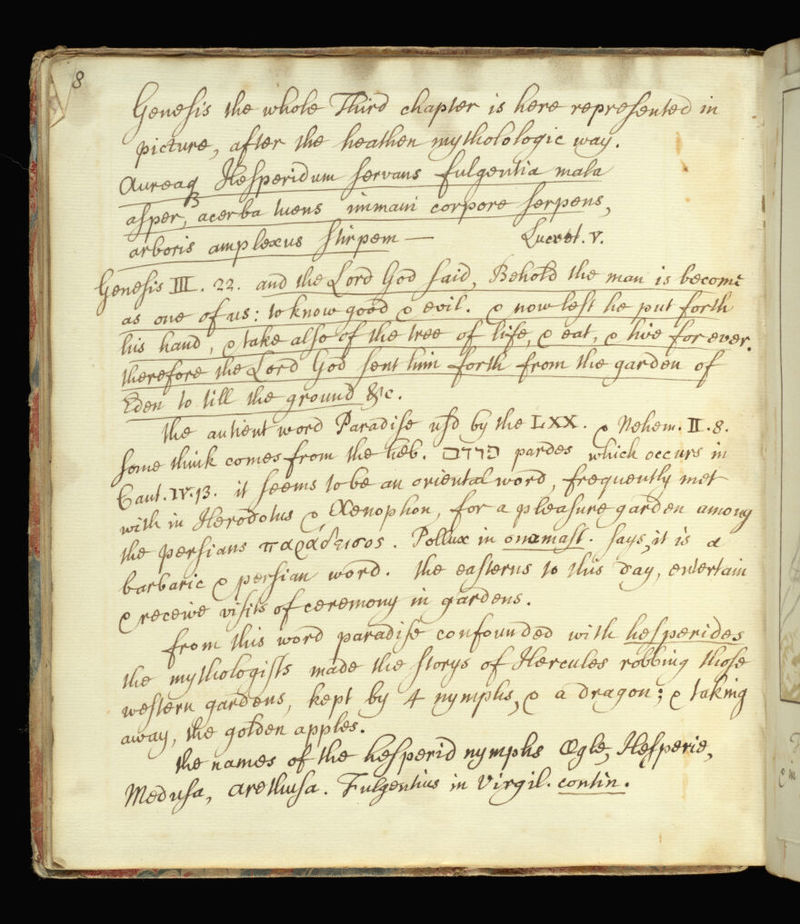 8
Genesis the whole Third chapter is here represented in
picture, after the heathen mythologic way.
Aureaq Hesperidum servans fulgentia mala
asper, acerba tuens immani corpore serpens,
arboris amplexus stirpem — Lucret. V.
Genesis III. 22. and the Lord God said, Behold the man is become
as one of us: to know good & evil. & now lest he put forth
his hand, & take also of the tree of life, & eat, & live for ever.
therefore the Lord God sent him forth from the garden of
Eden to till the ground &c.
the antient word Paradise usd by the LXX. & Nehem. II. 8.
some think comes from the heb. פרדס pardes which occurs in
Cant. IV. 13. it seems to be an oriental word, frequently met
with in Herodotus & Xenophon, for a pleasure garden among
the persians παράδεισος. Pollux in onomast. says, it is a
barbaric & persian word. the easterns to this day, entertain
& receive visits of ceremony in gardens.
from this word paradise confounded with hesperides
the mythologists made the storys of Hercules robbing those
western gardens, kept by 4 nymphs, & a dragon; & taking
away, the golden apples.
the names of the hesperid nymphs Ægle, Hesperie,
Medusa, arethusa. Fulgentius in Virgil. contin.